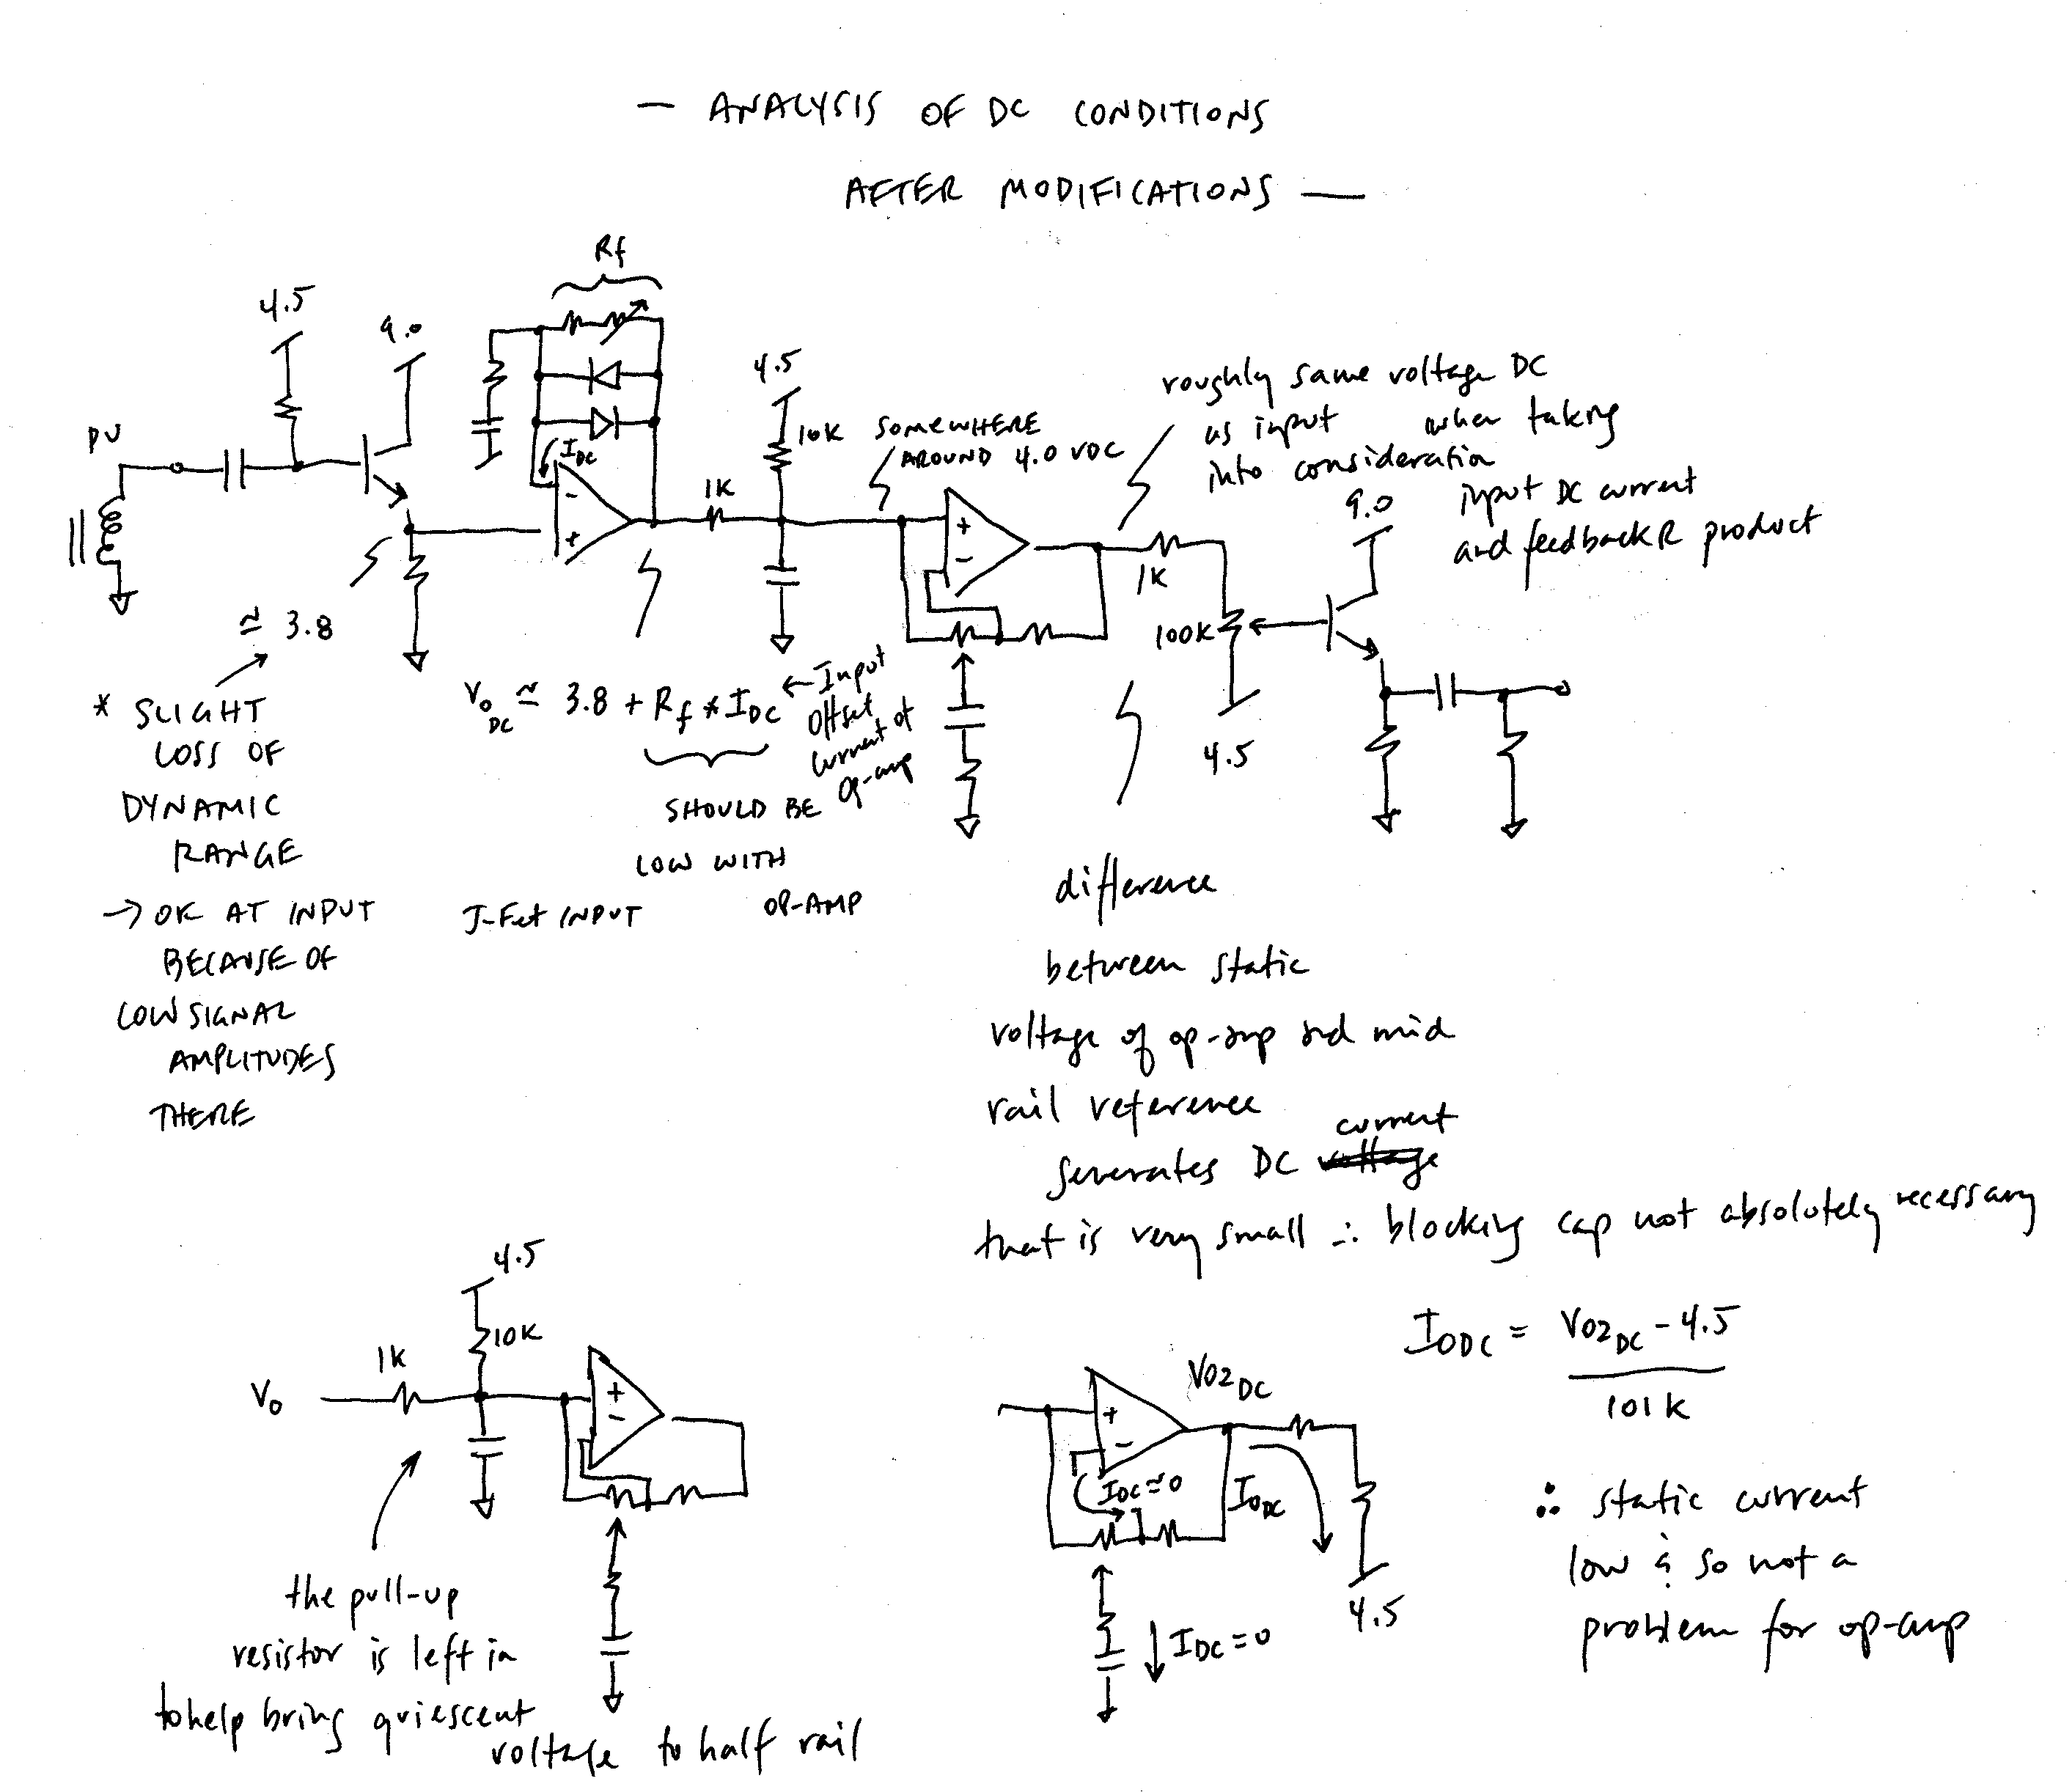 — ANALYSIS OF DC CONDITIONS
AFTER MODIFICATIONS —
Rf
4.5
9.0
PU
IDC
-
+
≃ 3.8
* SLIGHT
LOSS OF
DYNAMIC
RANGE
→ OK AT INPUT
BECAUSE OF
LOW SIGNAL
AMPLITUDES
THERE
1K
4.5
10K
SOMEWHERE
AROUND 4.0 VDC
+
-
VoDC ≃ 3.8 + Rf * IDC ← Input
Offset
Current of
Op-amp
SHOULD BE
LOW WITH
J-Fet INPUT OP-AMP
roughly same voltage DC
as input when taking
into consideration
input DC current
and feedback R product
9.0
1K
100K
4.5
difference
between static
voltage of op-amp and mid
rail reference
generates DC current
that is very small ∴ blocking cap not absolutely necessary
4.5
10K
1K
Vo
+
-
the pull-up
resistor is left in
to help bring quiescent
voltage to half rail
Vo2DC
+
-
IDC≃0
IODC
IDC=0
4.5
IODC = Vo2DC - 4.5
101K
∴ static current
low & so not a
problem for op-amp